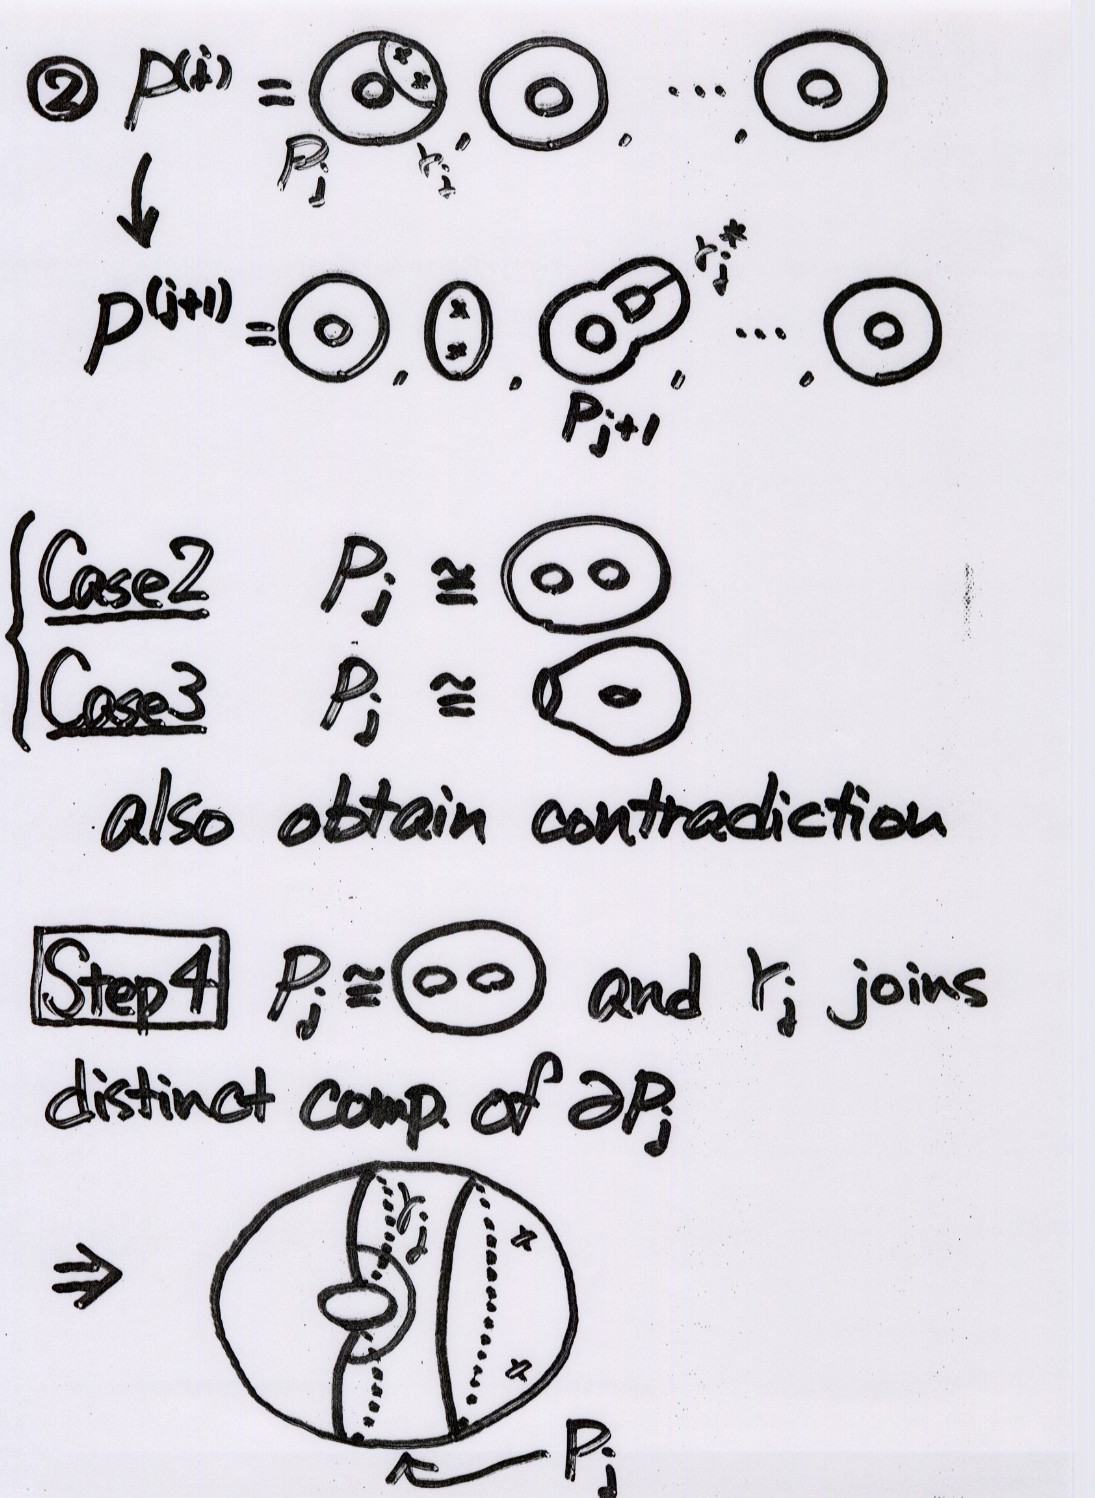 ② P⁽ʲ⁾ = , , ... ,
Pⱼ γⱼ
↓
γⱼ*
P⁽ʲ⁺¹⁾ = , , , ... ,
Pⱼ₊₁
Case2 Pⱼ ≅
Case3 Pⱼ ≅
also obtain contradiction
Step4 Pⱼ ≅ and γⱼ joins
distinct comp. of ∂Pⱼ
γⱼ
⇒
Pⱼ